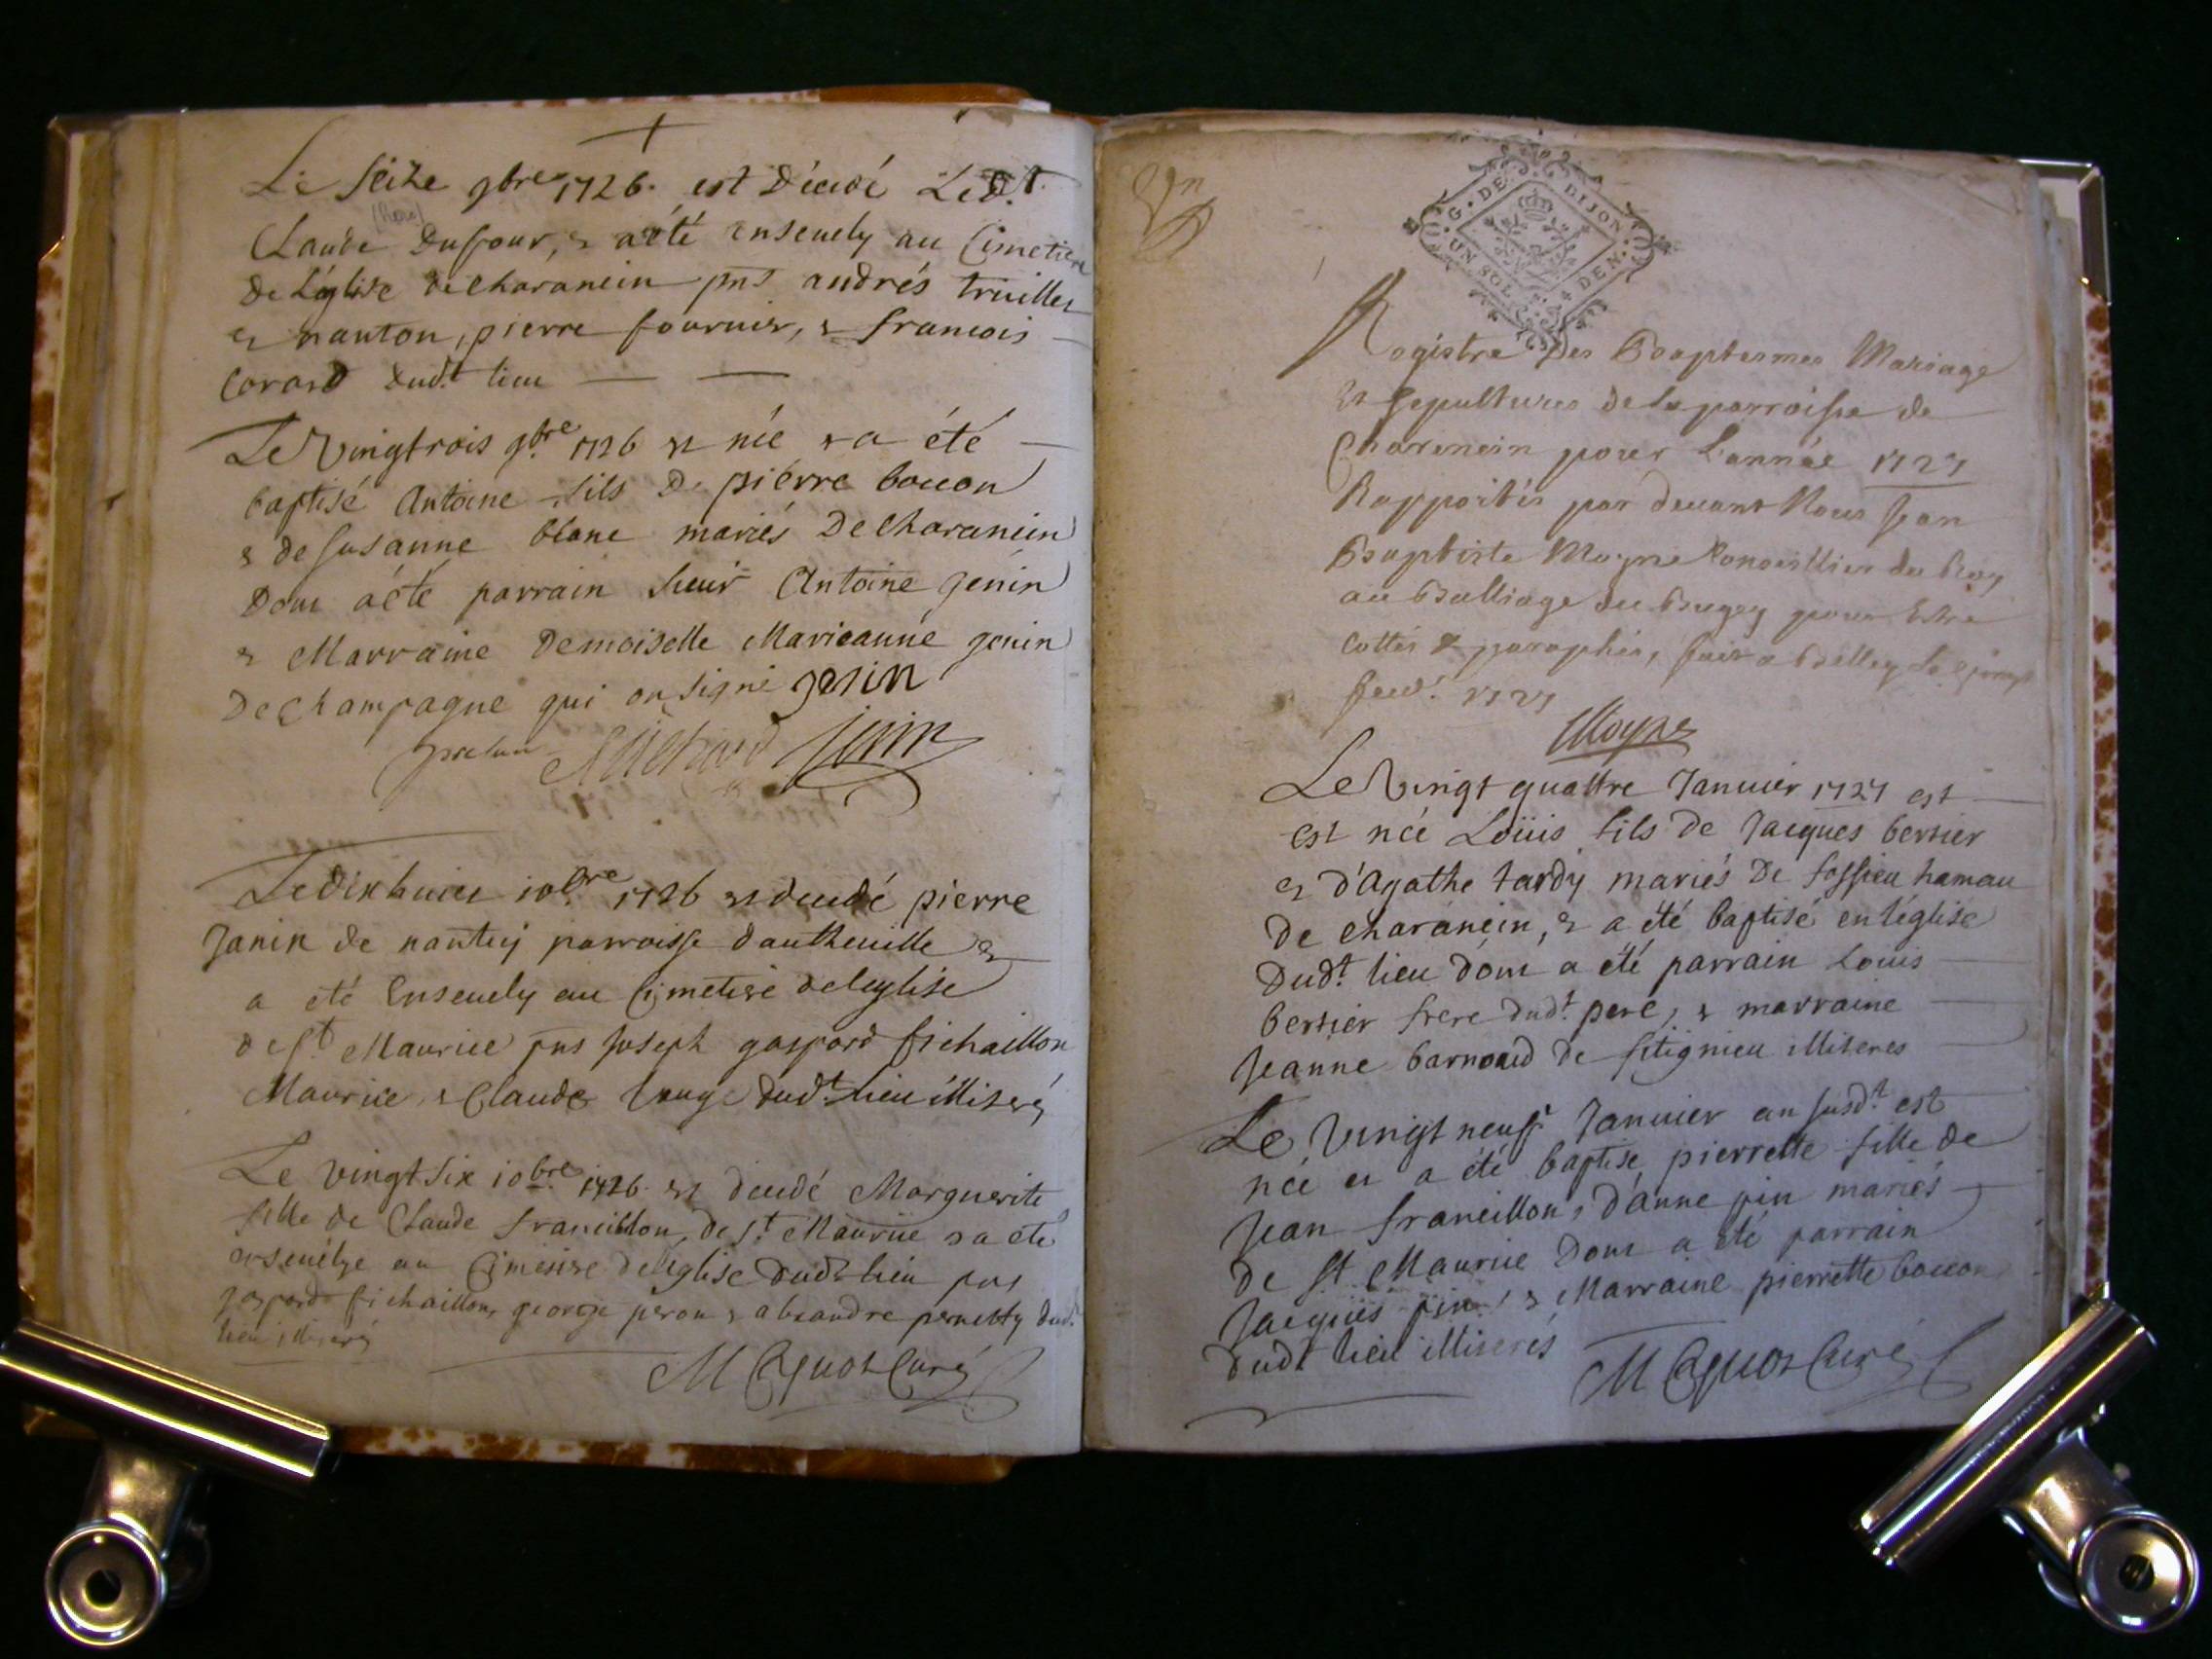 Le seize 9bre 1726. est décédé Led.t
Claude Dufour, & a été enseuely au Cimetiere
De L'église de charancin pnt andrés truilles
& nanton, pierre fournier, & francois
Corard dud.t lieu
Le Vingtrois 9bre 1726 est né & a été
baptisé Antoine fils De pierre bouon
& de susanne blanc mariés De charancin
Dont a été parrain sieur Antoine genin
& Marraine Demoiselle Marieanne genin
De champagne qui on signé genin
Michard genin
Le dix huict 10bre 1726 est decedé pierre
Janin de nantuy parroisse dautheuille &
a été Enseuely au Cimetiere de leglise
de st Maurice pns Joseph gaspard fichaillon
Maurice, & Claude Vuage dud.t lieu illiterés
Le vingt six 10bre 1726. est decedé Marguerite
fille de Claude francillon, de s.t Maurice & a été
enseuelye au Cimetiere de leglise dudt lieu pns
gaspard fichaillon, george peron & alexandre pernetty dud.
lieu illiterés
M Cquot Curé
G. DE DIJON.
UN SOL. 4 DEN.
Un
Registre Des Baptesmes Mariage
Et Sepultures de la parroisse de
Charencin pour L'année 1727
Rapportés par deuant Nous Jean
Baptiste Moyne Conseillier du Roy
au Bailliage du Bugey pour Estre
Cottés & paraphés, fait a Belley Le
feu.r 1727
Moyne
Le Vingt quattre Januier 1727 est
est née Loüis fils de Jacques bertier
& d'Agathe tardy mariés De fossieu hamau
De charancin, & a été baptisé en l'église
Dud.t lieu dont a été parrain Louis
bertier frere dud.t pere, & marraine
Jeanne barnoud de sitignieu illiteres
Le Vingt neuf Januier an susd.t est
née et a été baptise pierrette fille de
Jean francillon & d'anne pin mariés
De St Maurice Dont a été parrain
Jacques pin & Marraine pierrette bouon
Dudt lieu illiterés
M Cquot Curé